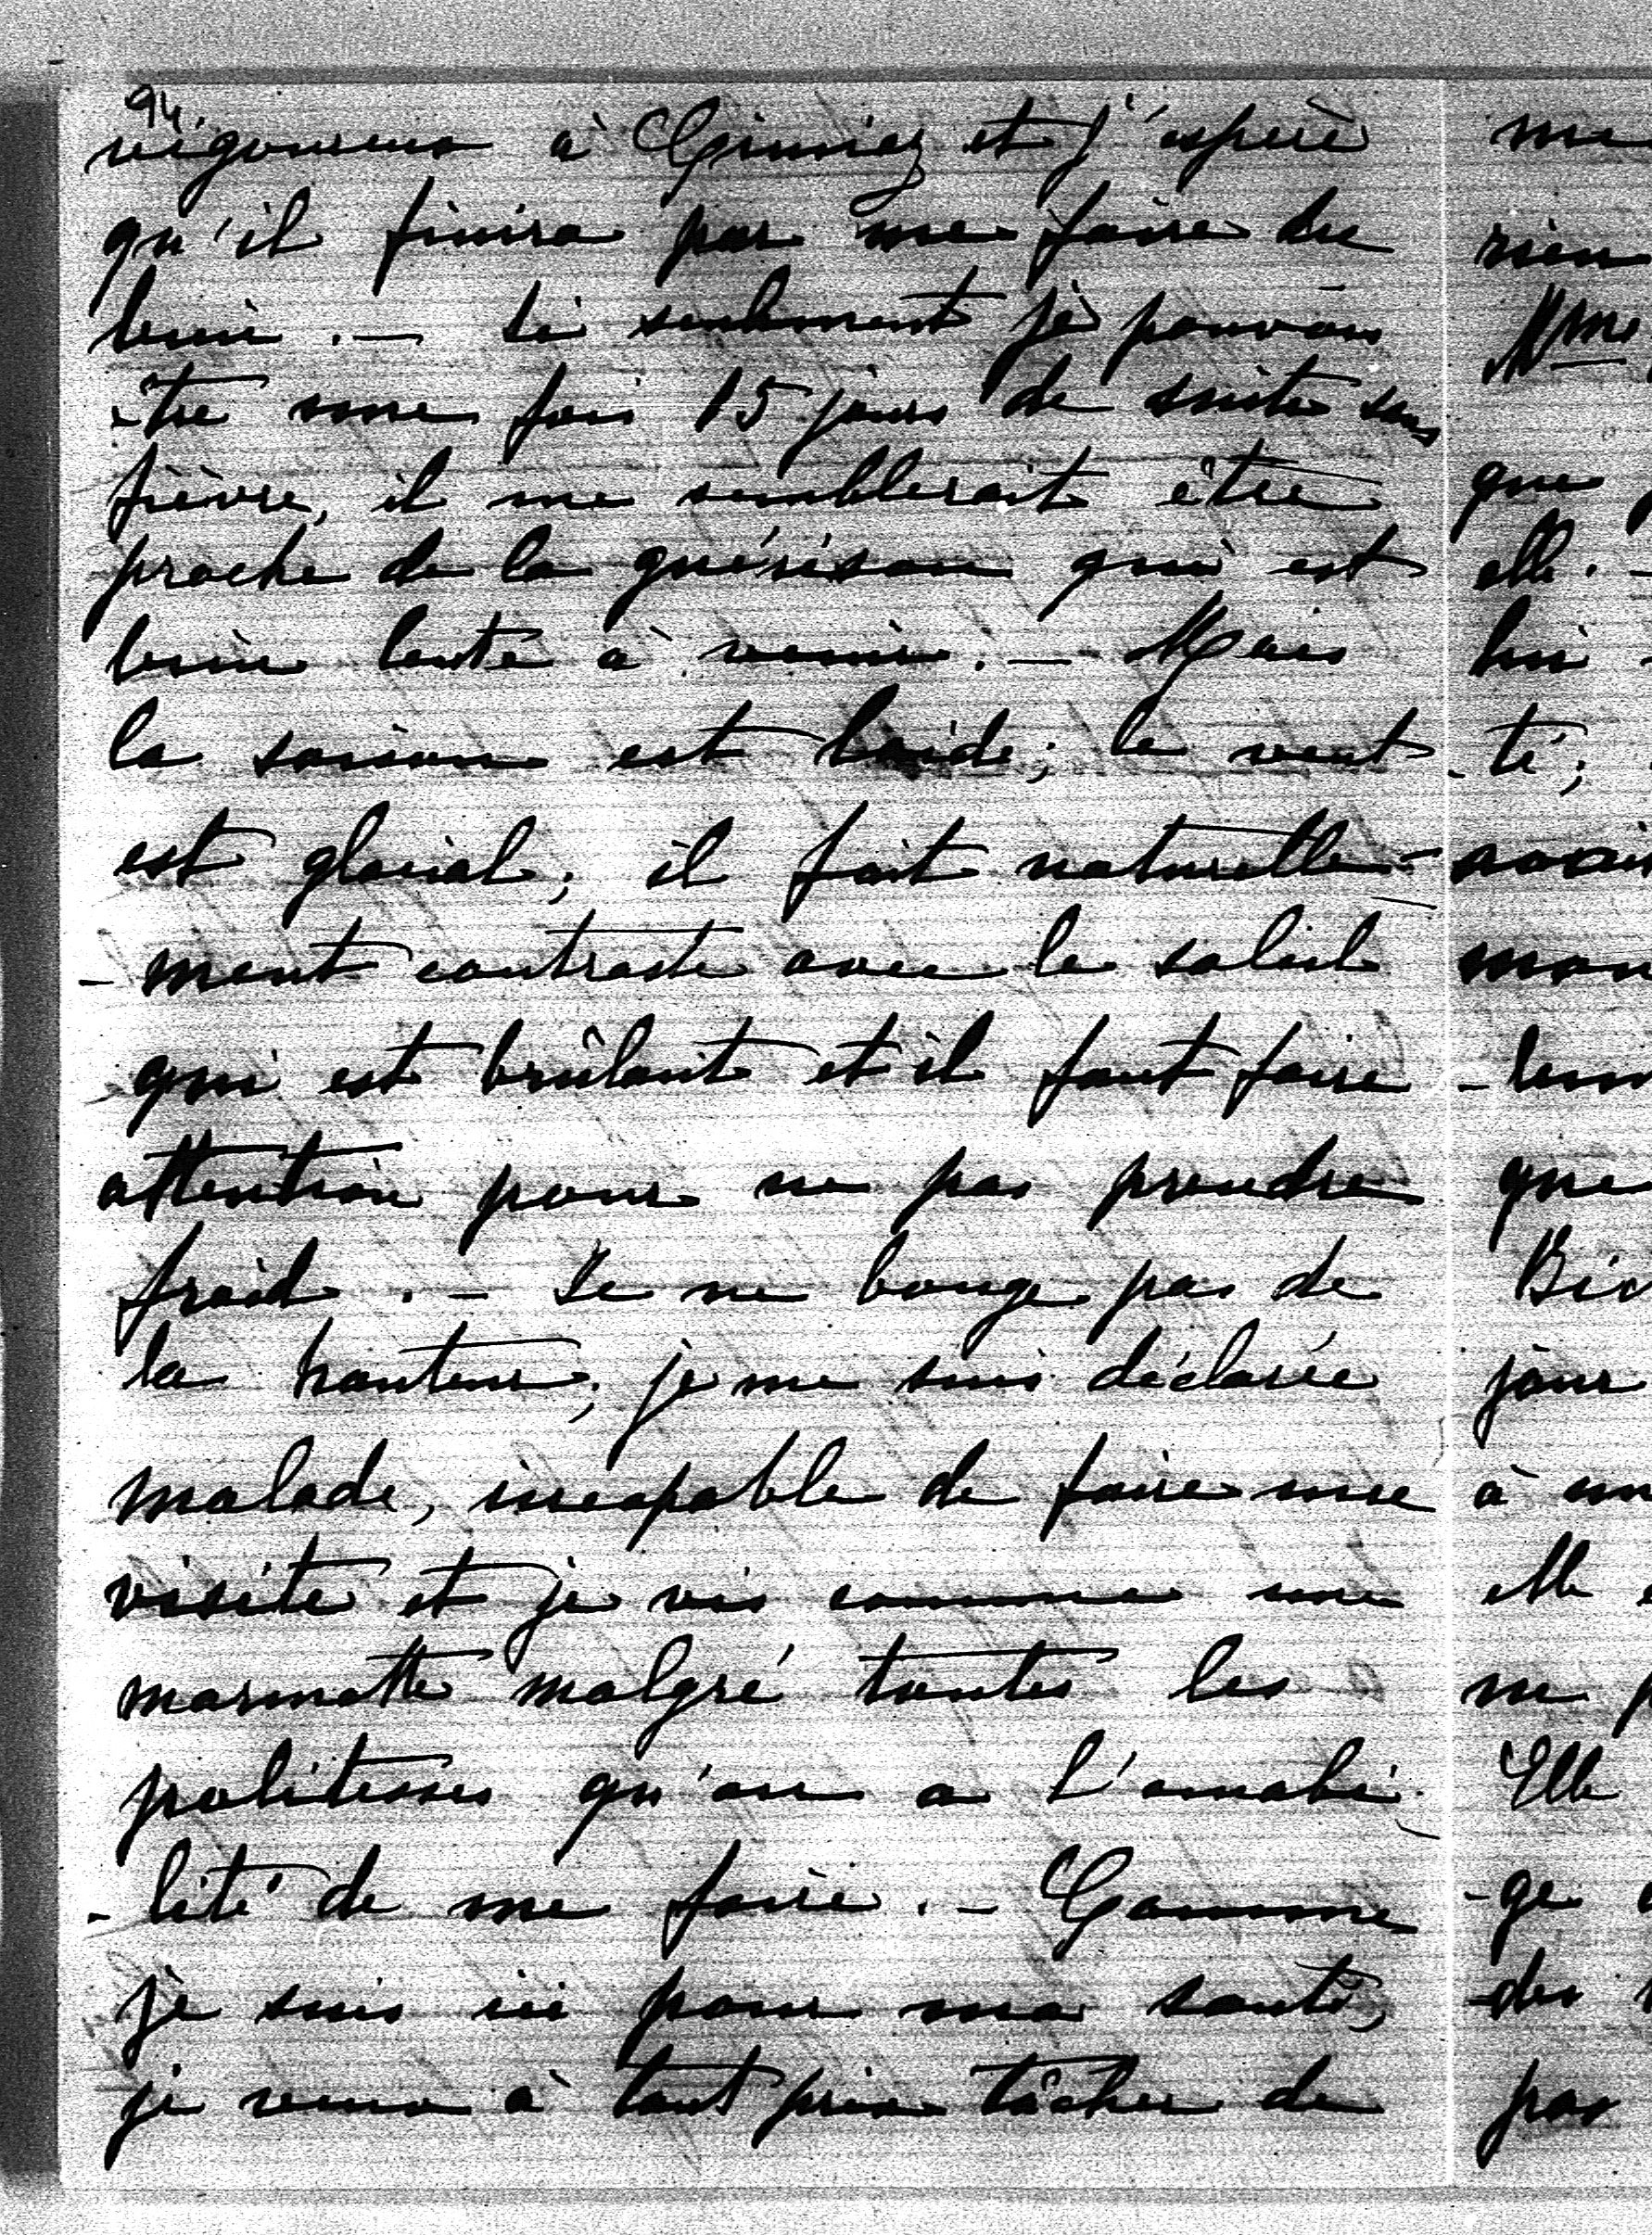 94
vigoureux à Cimiez et j'espère
qu'il finira par me faire du
bien. — Si seulement je pouvais
être une fois 15 jours de suite sans
fièvre, il me semblerait être
proche de la guérison qui est
bien lente à venir. — Mais
la saison est laide; le vent
est glacial; il fait naturelle-
-ment contraste avec le soleil
qui est brûlant et il faut faire
attention pour ne pas prendre
froid. — Je ne bouge pas de
la hauteur; je me suis déclarée
malade, incapable de faire une
visite et je vis comme une
marmotte malgré toutes les
politesses qu'on a l'amabi-
-lité de me faire. — Comme
je suis ici pour ma santé,
je veux à tout prix tâcher de
rien
Mme
que
elle. —
lui
-té;
que
jour
à un
elle
ne p
Elle
-ge
des
pas